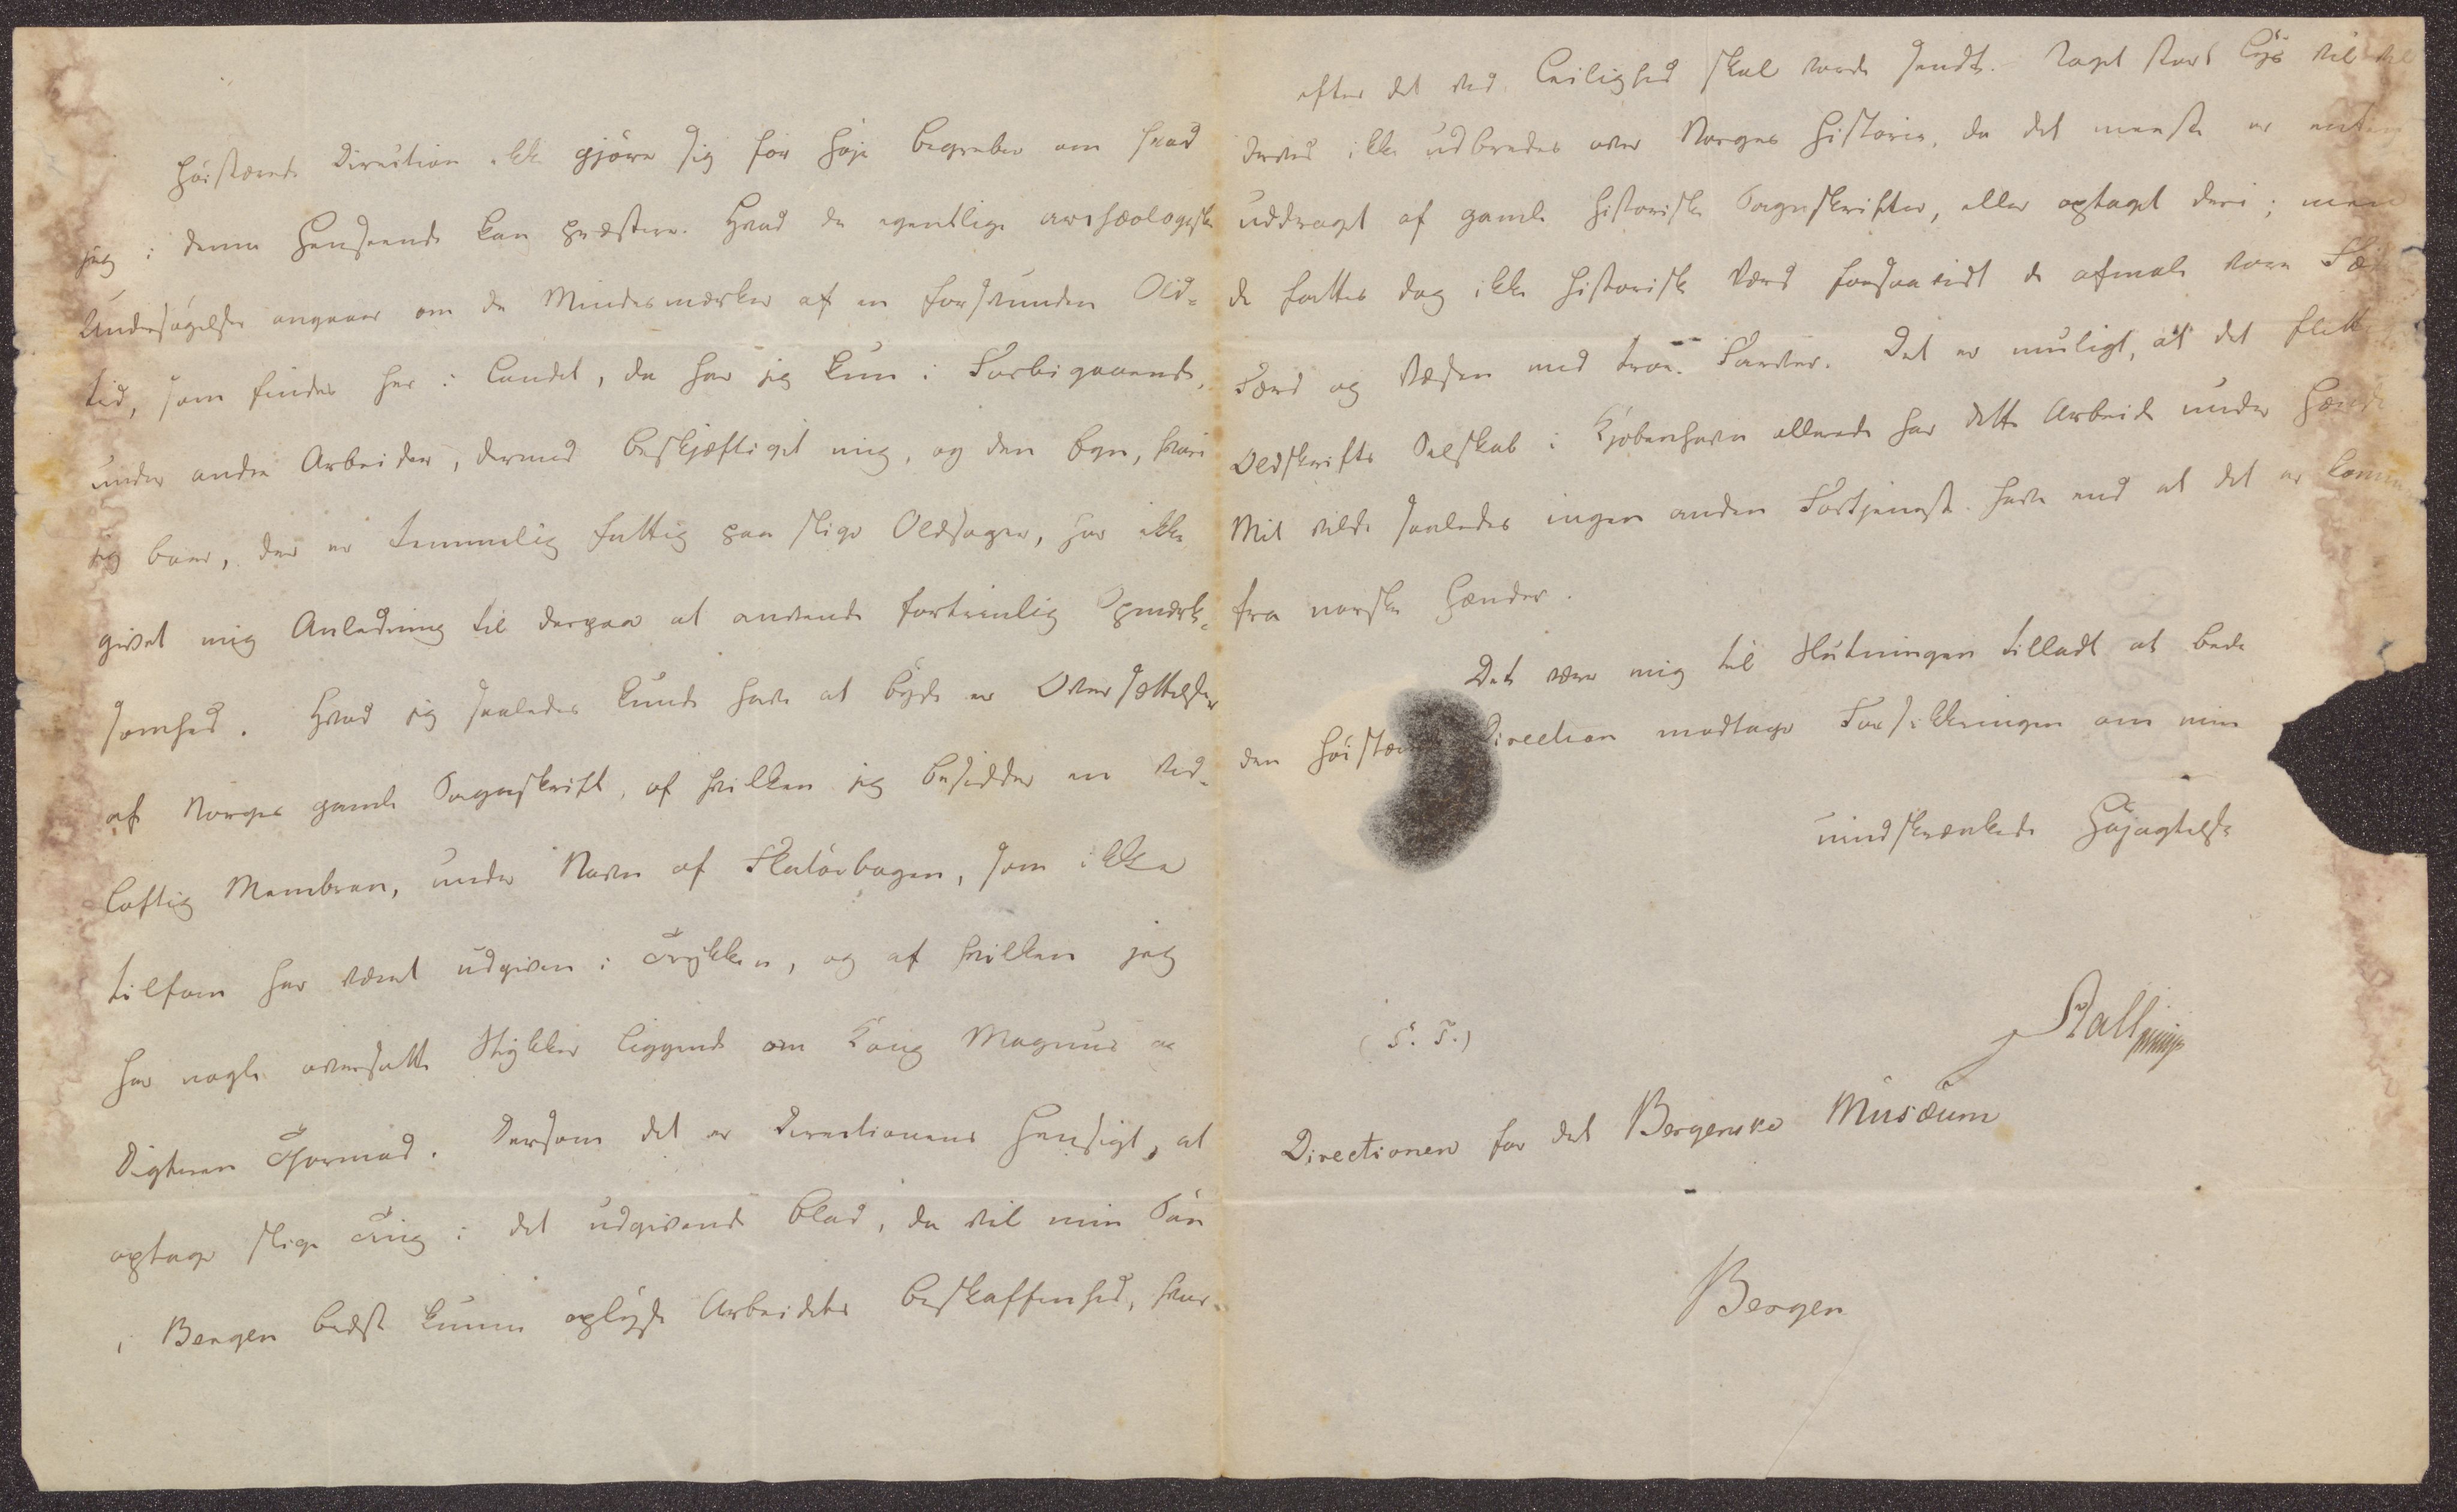 høistærede Direction ikke gjøre sig for høje Begreber om hvad
jeg i denne Henseende kan præstere. Hvad de egentlige archæologiske
Undersøgelser angaaer om de Mindesmærker af en forsvunden Old-
tid, som findes her i Landet, da har jeg kun i Forbigaaende,
under andre Arbeider, dermed beskjæftiget mig, og den Egn, hvori
jeg boer, der er temmelig fattig paa slige Oldsager, har ikke
givet mig Anledning til derpaa at anvende fortrinlig Opmærk-
somhed. Hvad jeg saaledes kunde have at byde er Oversættelser
af Norges gamle Sagaskrift, af hvilken jeg besidder en vid-
løftig Membran, under Navn af Flatøebogen, som ikke
tilforn har været udgiven i Trykken, og af hvilken jeg
har nogle oversatte Stykker liggende om Kong Magnus og
Digteren Thormod. Dersom det er Directionens Hensigt, at
optage slige Ting i det udgivende Blad, da vil min Søn
i Bergen bedst kunne oplyse Arbeidets Beskaffenhed, hvor-
efter det ved Leilighed skal vorde sendt. Noget stort Lys vil vel
derved ikke udbredes over Norges Historie, da det meeste er enten
uddraget af gamle historiske Sagaskrifter, eller optaget deri; men
de fattes dog ikke historisk Værd forsaavidt de afmale vore Fæ-
Færd og Væsen med troe Farver. Det er muligt, at det
Oldskrifts Selskab i Kjøbenhavn allerede har dette Arbeide under Hænde
Mit vilde saaledes ingen anden Fortjeneste have end at det er kommen
fra norske Hænder.
Det være mig til Slutningen tilladt at bede
den høistærede Direction modtage Forsikkringen om min
uindskrænkede Højagtelse
(S. T.)
Directionen for det Bergenske Musæum
Bergen